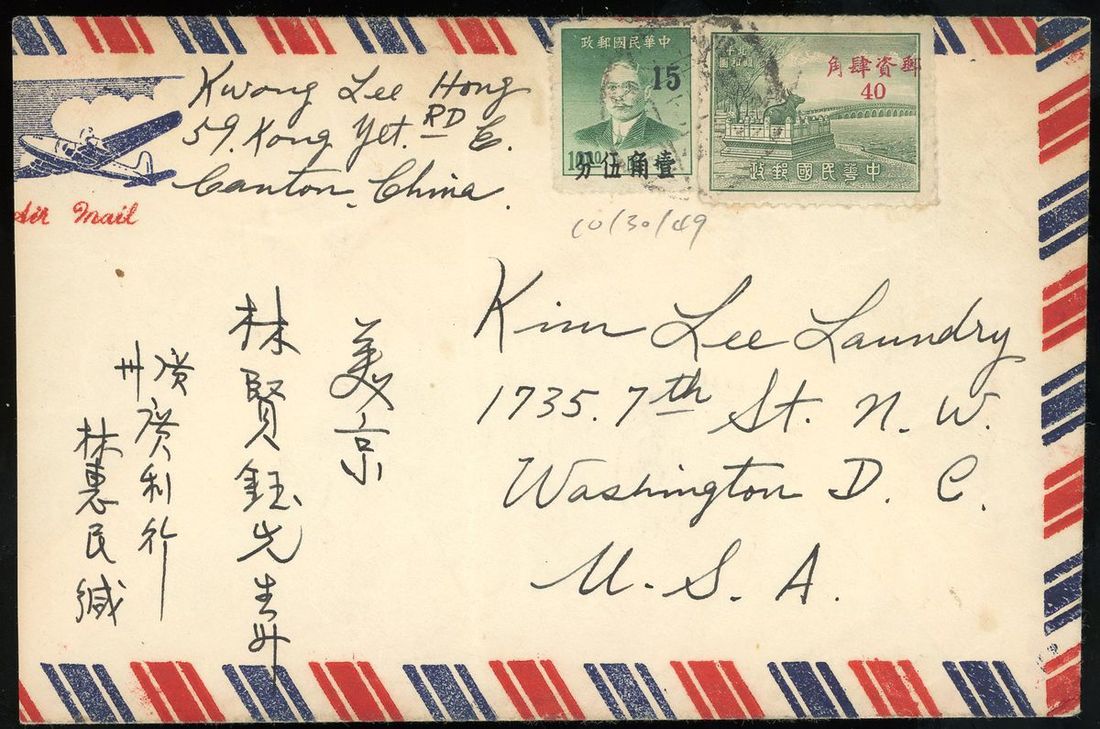 Kwong Lee Hong
59. Kong Yet. RD E.
Canton, China.
Air Mail
中華民國郵政
15
壹角伍分
中華民國郵政
郵資肆角
40
10/30/49
Kim Lee Laundry
1735. 7th St. N. W.
Washington D. C.
U. S. A.
美京
林賢鈺先生升
廣州
廣利行
林惠民緘